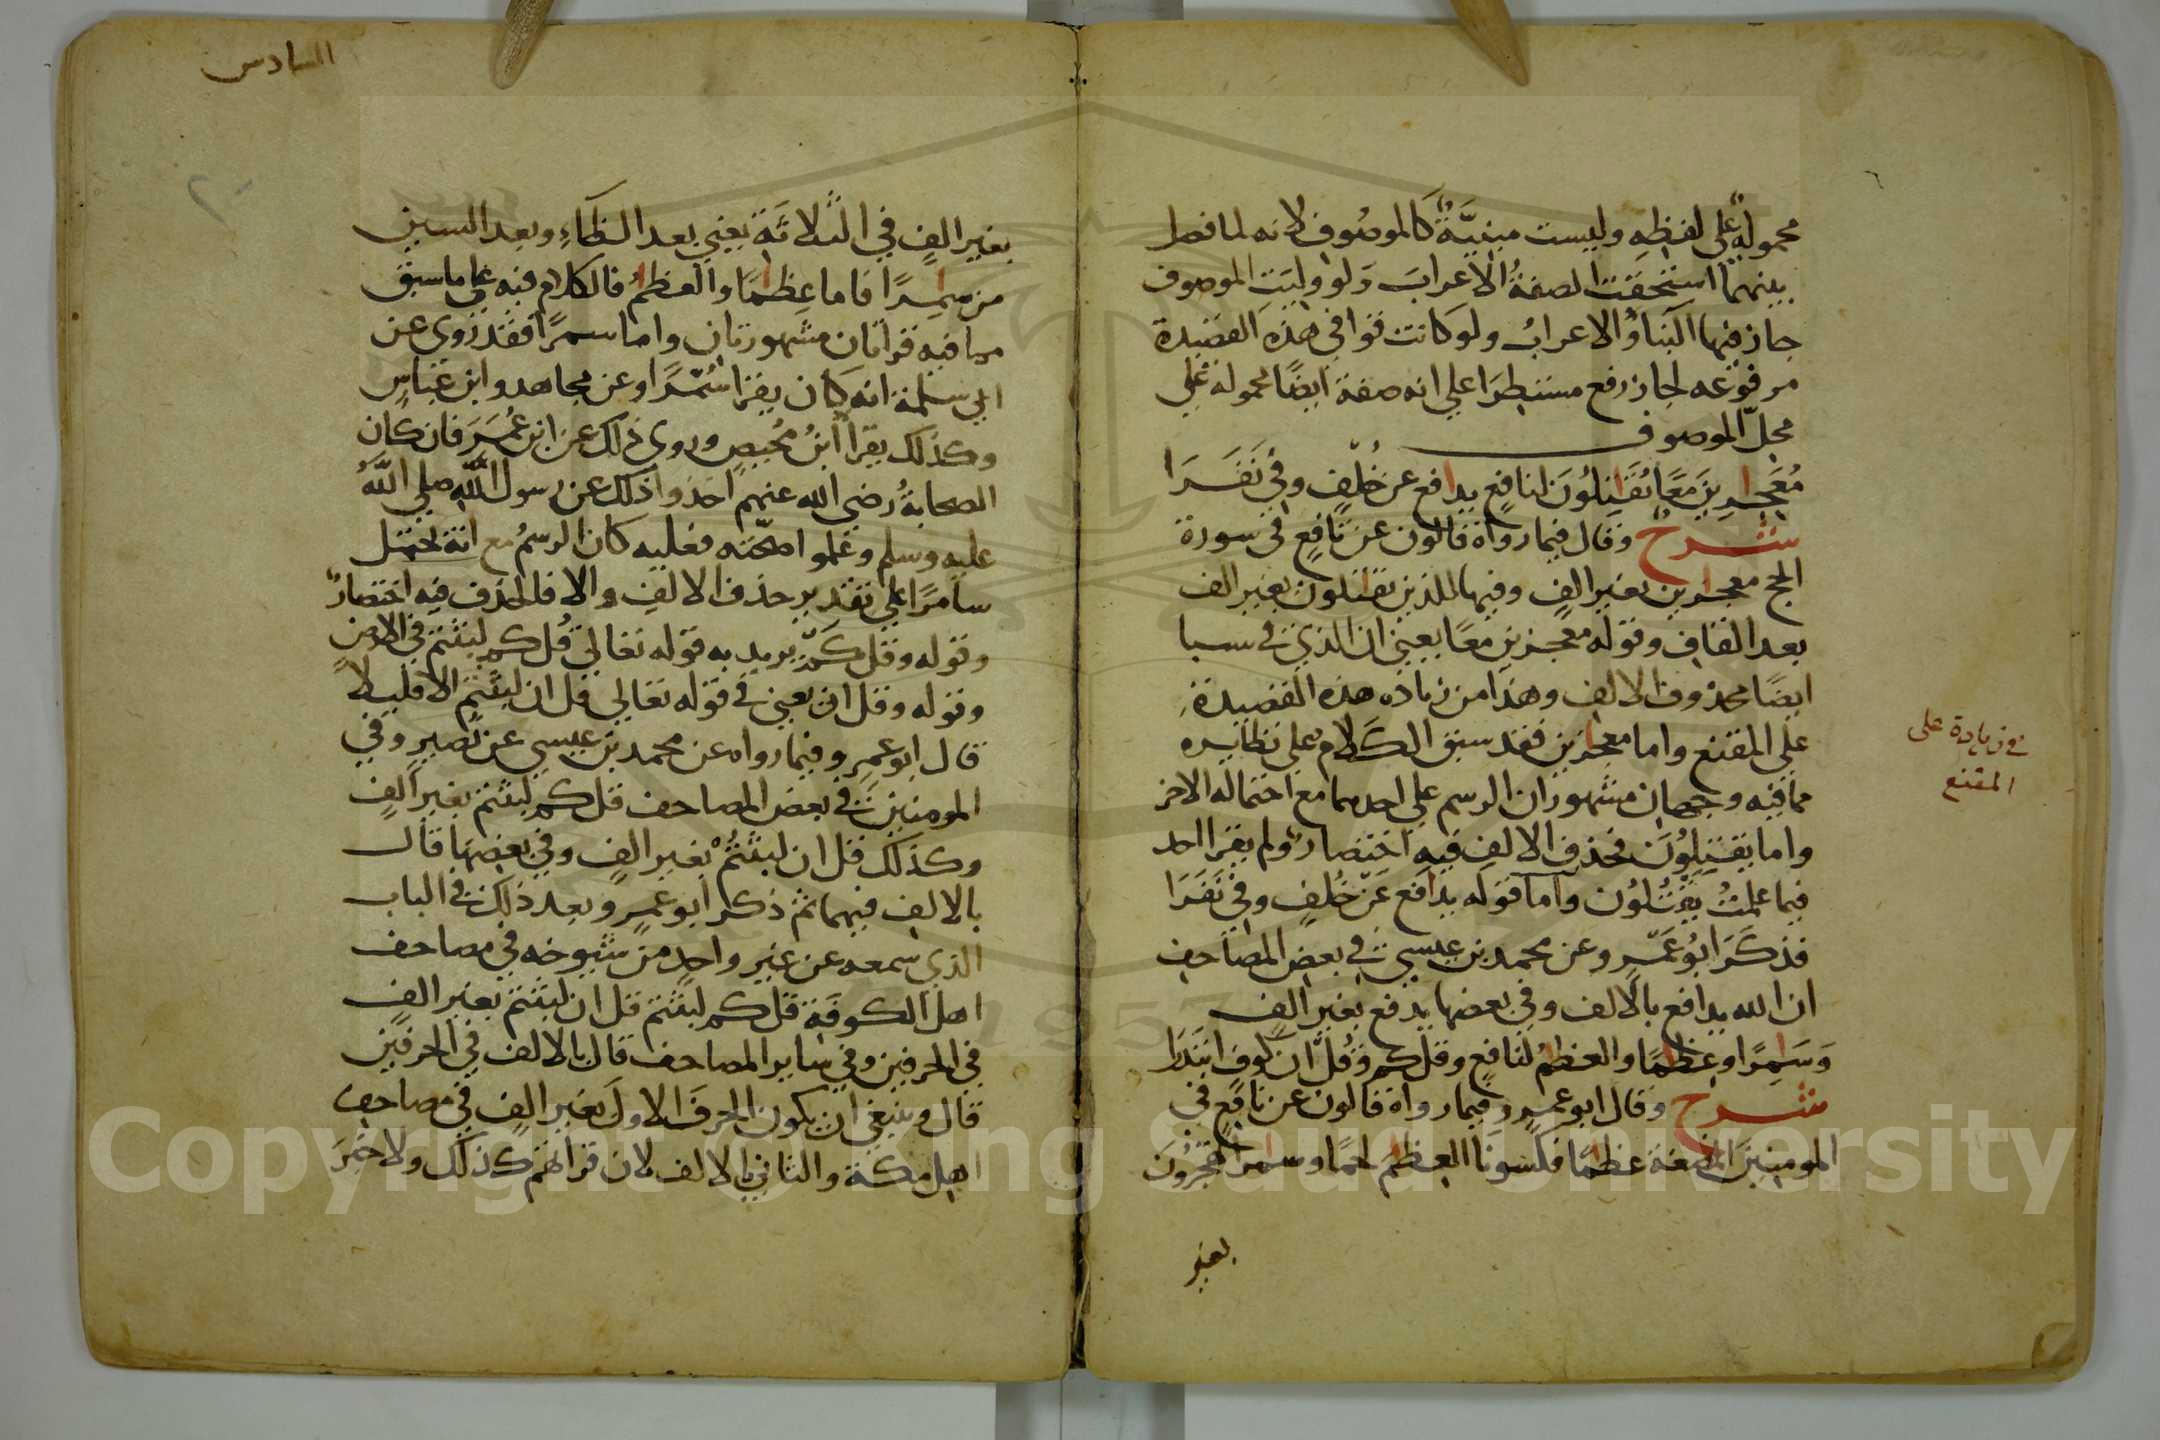 محمولة على لفظه وليست مبنيَّةً كالموصوف لانه لما فصل
بينهما استحقت الصفةُ الاعرابَ ولو وليَت الموصوف
جاز فيها البناؤ الاعرابُ ولو كانت قوافي هذه القصيدة
مرفوعه لجاز رفع مستطرا على انه صفة ايضًا محموله على
محلّ الموصوف
مُعَجزين معًا يُقَتِلُونَ لنافعٍ يدافع عن خُلفٍ وفي نَفَرَا
شرح وقال فيما رواه قالون عن نافعٍ في سورة
الحج معجزين بغير الفٍ وفيها للذين يقتلون بغير الف
بعد القاف وقوله معجزين معًا يعني ان الذي في سبا
ايضًا محذوف الالف وهذا من زياده هذه القصيدة
على المقنع واما معجزين فقد سبق الكلام على نظايره
مما فيه وجهان مشهوران الرسم على احدهما مع احتماله الاخر
واما يقتلُونَ فحذف الالف فيه اختصارٌ ولم يقرا احد
فيما علمتُ يَقْتُلُون واما قوله يدافع عن خُلفٍ وفي نَفَرَا
فذكَرَ ابُو عَمرٍو عن محمد بن عيسى في بعض المصاحف
ان الله يدافع بالالف وفي بعضها يدفع بغير الفٍ
وَسَامِرًا وعِظمًا والعظمُ لنافعٍ وقل كم وَقُلْ ان كوفٍ ابتدَرَا
شرح وقال ابو عمرو فيما رواه قالون عن نافع في
المومنين المضغة عظمًا فكسونا العظمَ لحمًا وسمرًا تهجرُون
بغير
في زيادة على
المقنع
السادس
٢٠
بغير الفٍ في الثلاثة يعني بعد الظاءِ وبعد السين
من سمِرًا فاما عِظمًا والعظم فالكلام فيه على ما سبق
مما فيه قراتان مشهورتان واما سمرًا فقد رُوي عن
ابي سلمة انه كان يقرا سُمَّرًا وعن مجاهد وابن عباسٍ
وكذلك يقرا ابنُ مُحيصٍ وروي ذلك عن ابن عُمَرَ فان كان
الصحابةُ رضي الله عنهم اخذوا ذلك عن رسول اللّه صلى اللّهُ
عليه وسلم وعلموا صحّته فعليه كان الرسمُ مع انه يحتمل
سامرًا على تقدير حذف الالف والا فالحذف فيه اختصارٌ
وقوله وقل كم يريد به قوله تعالى قُل كم لبثتم في الارض
وقوله وقل ان يعني في قوله تعالى قل ان لبثتم الا قليلا
قال ابو عمرٍو وفيما رواه عن محمد بن عيسى عن نُصيرٍ وفي
المومنين في بعض المصاحف قل كم لبثتم بغير الفٍ
وكذلك قل ان لبثتُمْ بغير الفٍ وفي بعضها قال
بالالف فيهما ثم ذكر ابو عمرٍو بعد ذلك في الباب
الذي سمعه عن غير واحدٍ من شيوخه في مصاحف
اهل الكوفة قل كم لبثتم قل ان لبثتم بغير الفٍ
في الحرفين وفي ساير المصاحف قال بالالف في الحرفين
قال وينبغي ان يكون الحرف الاول بغير الفٍ في مصاحف
اهل مكة والثاني بالالف لان قراتهم كذلك ولا خبرَ